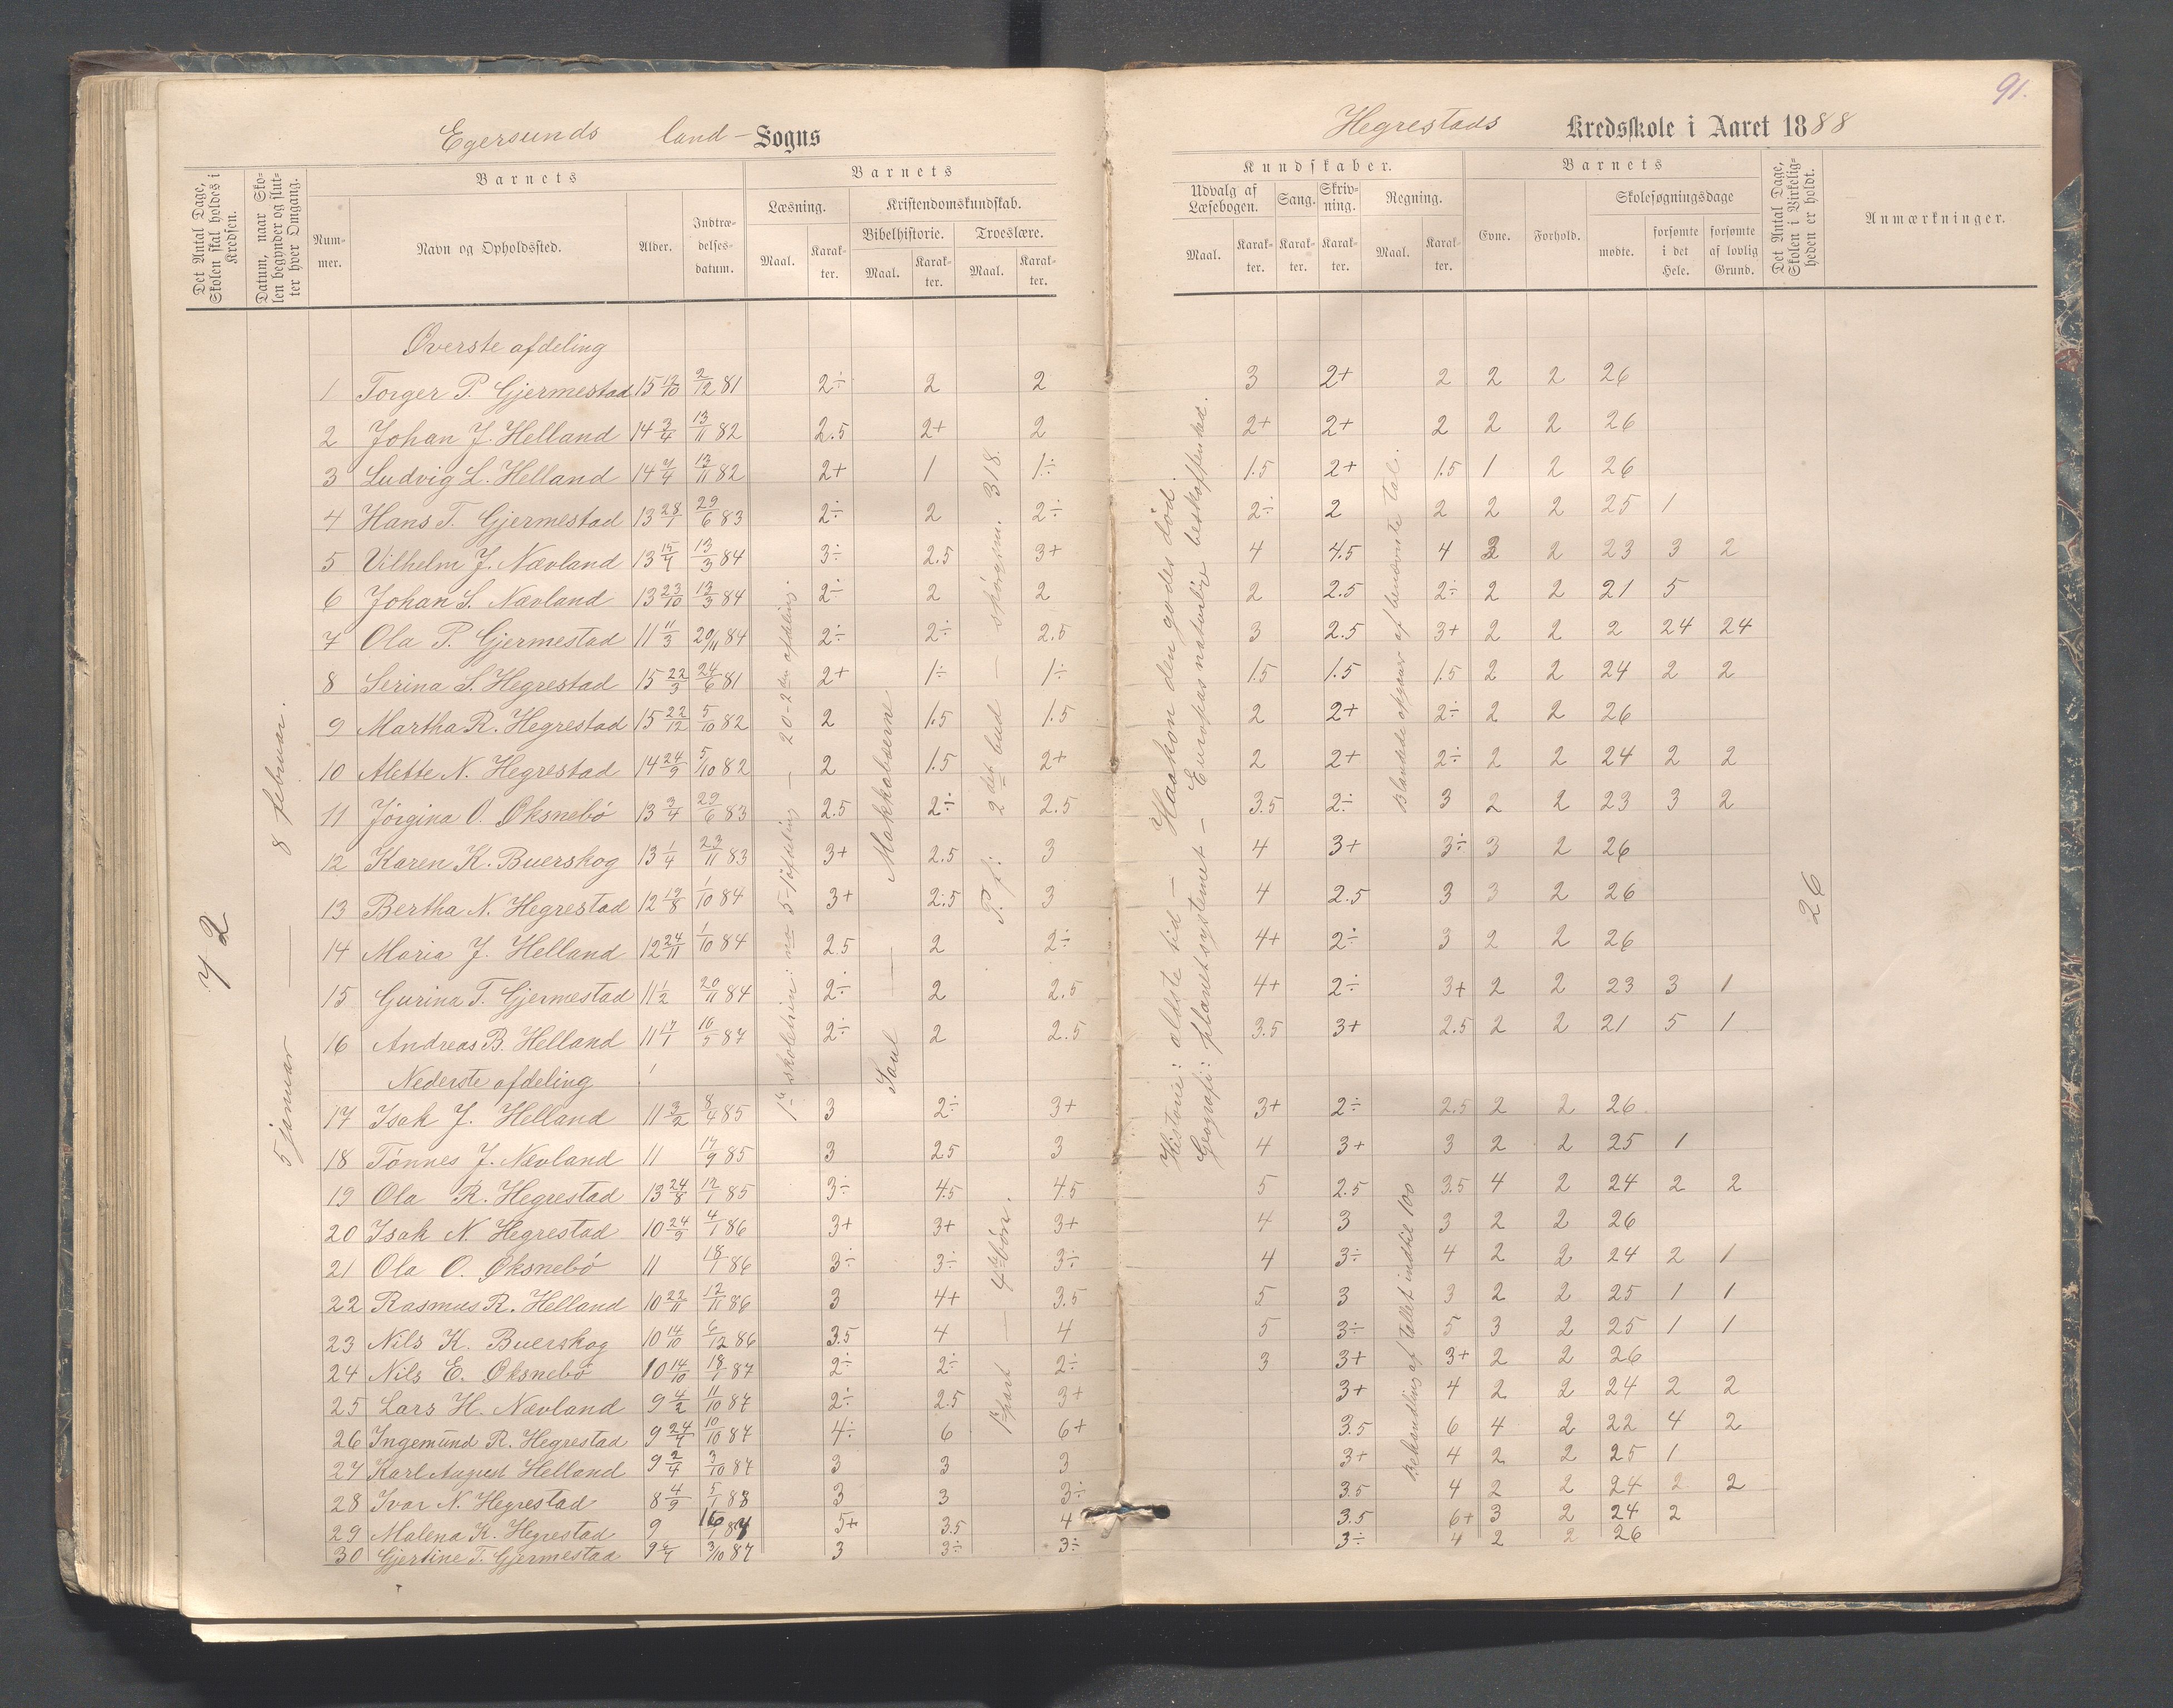 91.
Egersunds land- Sogns
Hegrestads Kredsskole i Aaret 1888
Det Antal Dage, Skolen skal holdes i Kredsen.
Datum, naar Skolen begynder og slutter hver Omgang.
Barnets
Nummer.
Navn og Opholdssted.
Alder.
Indtrædelsesdatum.
Barnets
Læsning.
Maal.
Karakter.
Kristendomskundskab.
Bibelhistorie.
Maal.
Karakter.
Troeslære.
Maal.
Karakter.
Kundskaber.
Udvalg af Læsebogen.
Maal.
Karakter.
Sang.
Karakter.
Skrivning.
Karakter.
Regning.
Maal.
Karakter.
Barnets
Evne.
Forhold.
Skolesøgningsdage
mødte.
forsømte i det Hele.
forsømte af lovlig Grund.
Det Antal Dage, Skolen i Virkeligheden er holdt.
Anmærkninger.
72
5 januar — 8 februar.
1ste skoletrin: no 5-1ste afdeling — 20-2den afdeling.
Saul — Makkabæerne
P. f: 2det bud — skórgsm. 318.
1ste part — 4de bön.
Historie: aldste tid — Haakon den godes död.
Geografi: planetsystemet — Europas naturlige beskaffenhed.
Blandede opgaver af benævnte tal.
Behandling af tallet indtil 100
26
Øverste afdeling
1 Torger P. Gjermestad 15 12/10 2/12 81 2÷ 2 2 3 2+ 2 2 2 26
2 Johan J. Helland 14 3/4 13/11 82 2.5 2+ 2 2+ 2+ 2 2 2 26
3 Ludvig L. Helland 14 7/9 13/11 82 2+ 1 1÷ 1.5 2+ 1.5 1 2 26
4 Hans T. Gjermestad 13 28/1 29/6 83 2÷ 2 2÷ 2÷ 2 2 2 2 25 1
5 Vilhelm J. Nævland 13 15/7 13/3 84 3÷ 2.5 3+ 4 4.5 4 3 2 23 3 2
6 Johan S. Nævland 13 23/10 13/3 84 2÷ 2 2 2 2.5 2÷ 2 2 21 5
7 Ola P. Gjermestad 11 11/3 20/11 84 2÷ 2÷ 2.5 3 2.5 3+ 2 2 2 24 24
8 Serina S. Hegrestad 15 22/3 24/6 81 2+ 1÷ 1÷ 1.5 1.5 1.5 2 2 24 2 2
9 Martha R. Hegrestad 15 22/12 5/10 82 2 1.5 1.5 2 2+ 2÷ 2 2 26
10 Alette N. Hegrestad 14 24/9 5/10 82 2 1.5 2+ 2 2+ 2÷ 2 2 24 2 2
11 Jörgina O. Øksnebö 13 3/4 29/6 83 2.5 2÷ 2.5 3.5 2÷ 3 2 2 23 3 2
12 Karen K. Buerskog 13 1/4 23/11 83 3+ 2.5 3 4 3+ 3÷ 3 2 26
13 Bertha N. Hegrestad 12 19/8 1/10 84 3+ 2.5 3 4 2.5 3 3 2 26
14 Maria J. Helland 12 24/11 1/10 84 2.5 2 2÷ 4+ 2÷ 3 2 2 26
15 Gurina T. Gjermestad 11 1/2 20/11 84 2÷ 2 2.5 4+ 2÷ 3+ 2 2 23 3 1
16 Andreas B. Helland 11 17/1 16/5 87 2÷ 2 2.5 3.5 3+ 2.5 2 2 21 5 1
Nederste afdeling
17 Isak J. Helland 11 3/2 8/4 85 3 2÷ 3+ 3+ 2÷ 2.5 2 2 26
18 Tönnes J. Nævland 11 17/9 85 3 2.5 3 4 3+ 3 2 2 25 1
19 Ola R. Hegrestad 13 24/8 12/1 85 3÷ 4.5 4.5 5 2.5 3.5 4 2 24 2 2
20 Isak N. Hegrestad 10 24/9 4/1 86 3+ 3+ 3+ 4 3 3 2 2 26
21 Ola O. Øksnebö 11 18/1 86 3÷ 3÷ 3÷ 4 3÷ 4 2 2 24 2 1
22 Rasmus R. Helland 10 22/11 12/11 86 3 4+ 3.5 5 3 3 2 2 25 1 1
23 Nils K. Buerskog 10 14/10 6/12 86 3.5 4 4 5 3÷ 5 3 2 25 1 1
24 Nils E. Øksnebö 10 14/10 18/1 87 2÷ 2÷ 2÷ 3 3+ 3+ 2 2 26
25 Lars H. Nævland 9 4/2 11/10 87 2÷ 2.5 3+ 3+ 4 2 2 24 2 2
26 Ingemund R. Hegrestad 9 24/7 10/10 87 4÷ 6 6+ 3.5 6 4 2 22 4 2
27 Karl August Helland 9 2/4 3/10 87 3 3 3 3+ 4 2 2 25 1
28 Ivar N. Hegrestad 8 4/9 5/1 88 3 3 3÷ 3.5 4 2 2 24 2 2
29 Malena K. Hegrestad 9 16/1 87 5+ 3.5 4 3.5 6+ 3 2 24 2
30 Gjertine T. Gjermestad 9 6/7 3/10 87 3 3÷ 3÷ 3÷ 4 2 2 26